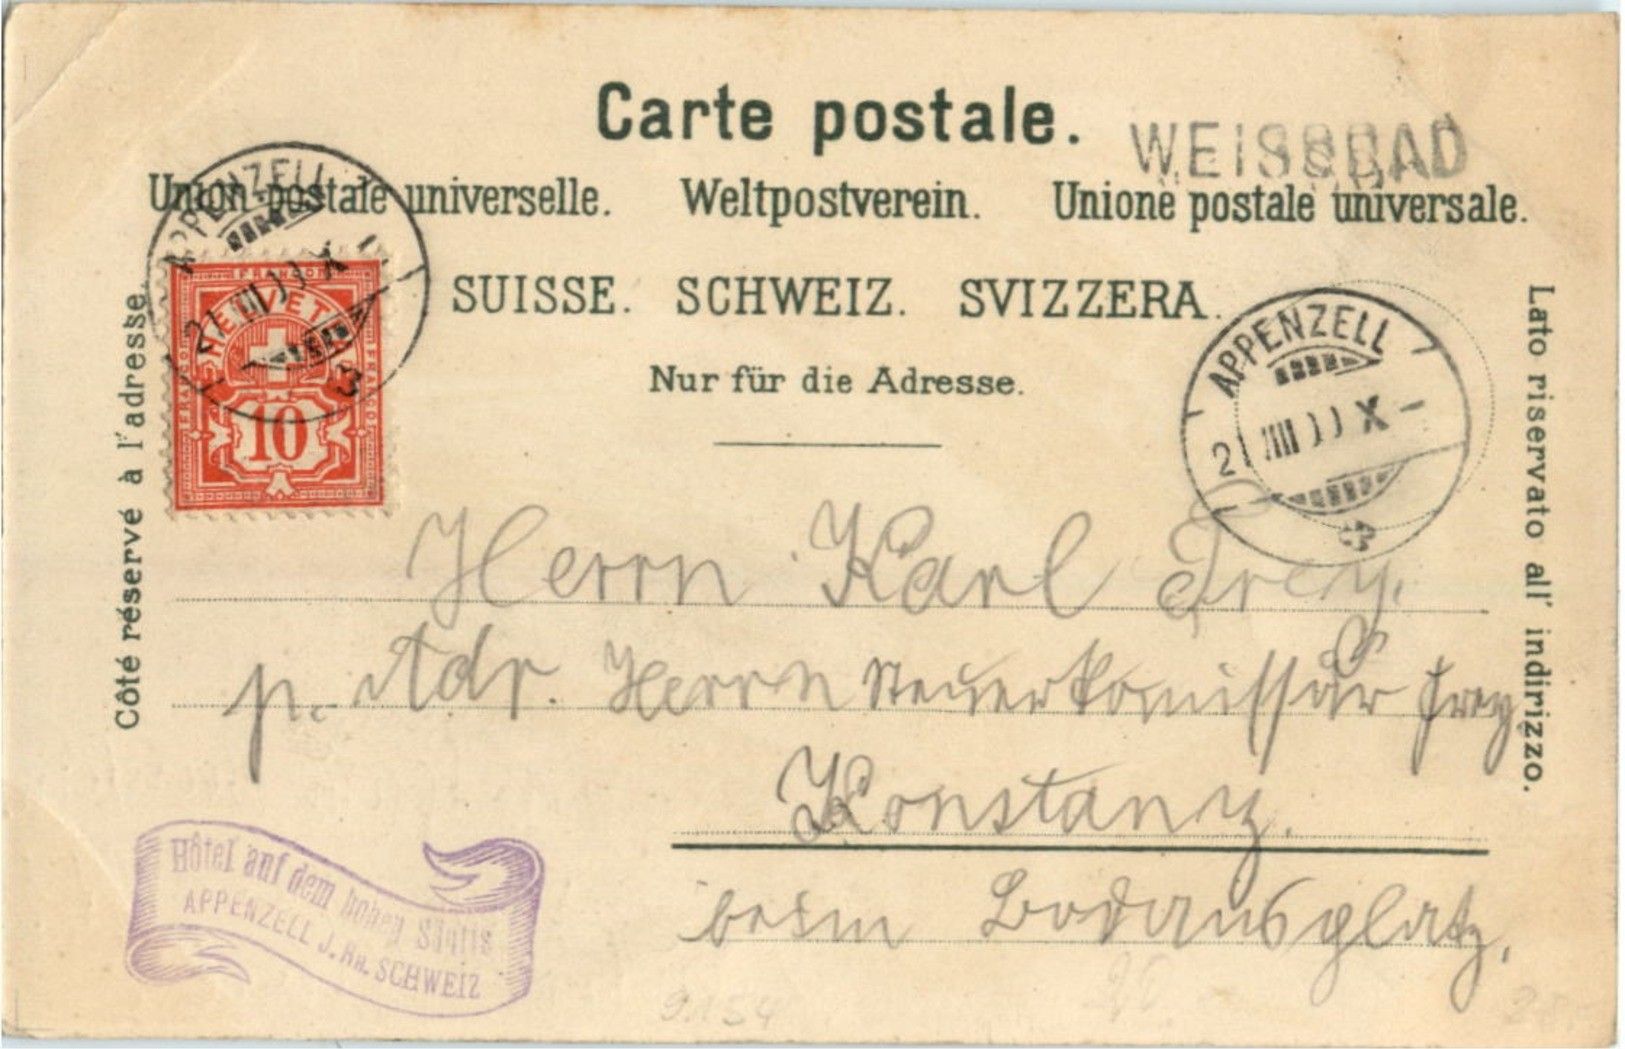 Carte postale.
WEISSBAD
Union postale universelle. Weltpostverein. Unione postale universale.
SUISSE. SCHWEIZ. SVIZZERA.
Nur für die Adresse.
Côté réservé à l'adresse.
Lato riservato all' indirizzo.
APPENZELL
FRANCO
HELVETIA
FRANCO
FRANCO
10
APPENZELL
Herrn Karl Frey.
p. Adr. Herrn Steuerkomissär Frey
Konstanz.
beim Bodansplatz.
Hôtel auf dem hohen Säntis
APPENZELL J. Rh. SCHWEIZ
9154